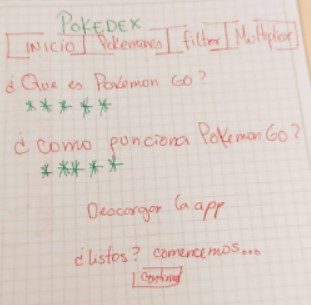 POKEDEX
INICIO Pokemones filter Multiplos
¿ Que es Pokemon GO?
* * * * *
¿ como funciona Pokemon GO?
* * * * *
Descargar la app
¿listos? comencemos...
Continuar